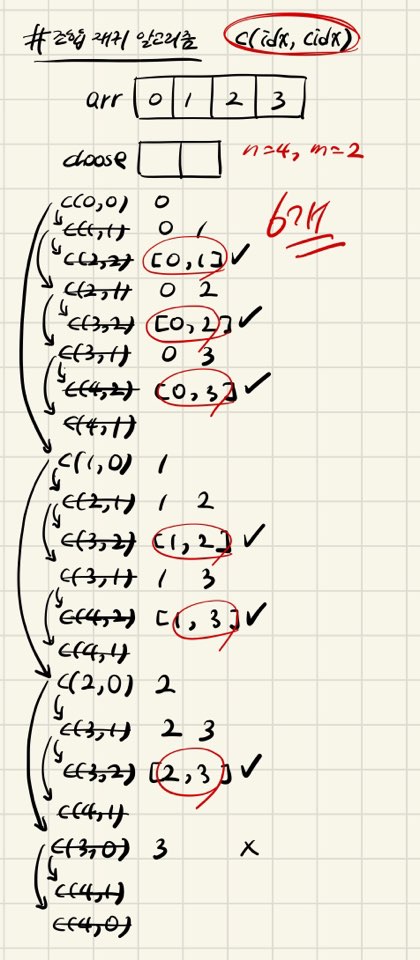 # 조합 재귀 알고리즘 c(idx, cidx)
arr 0 1 2 3
choose n=4, m=2
c(0,0) 0
c(1,1) 0 1
c(2,2) [0,1] ✓
c(2,1) 0 2
c(3,2) [0,2] ✓
c(3,1) 0 3
c(4,2) [0,3] ✓
c(4,1)
c(1,0) 1
c(2,1) 1 2
c(3,2) [1,2] ✓
c(3,1) 1 3
c(4,2) [1,3] ✓
c(4,1)
c(2,0) 2
c(3,1) 2 3
c(3,2) [2,3] ✓
c(4,1)
c(3,0) 3 x
c(4,1)
c(4,0)
6개